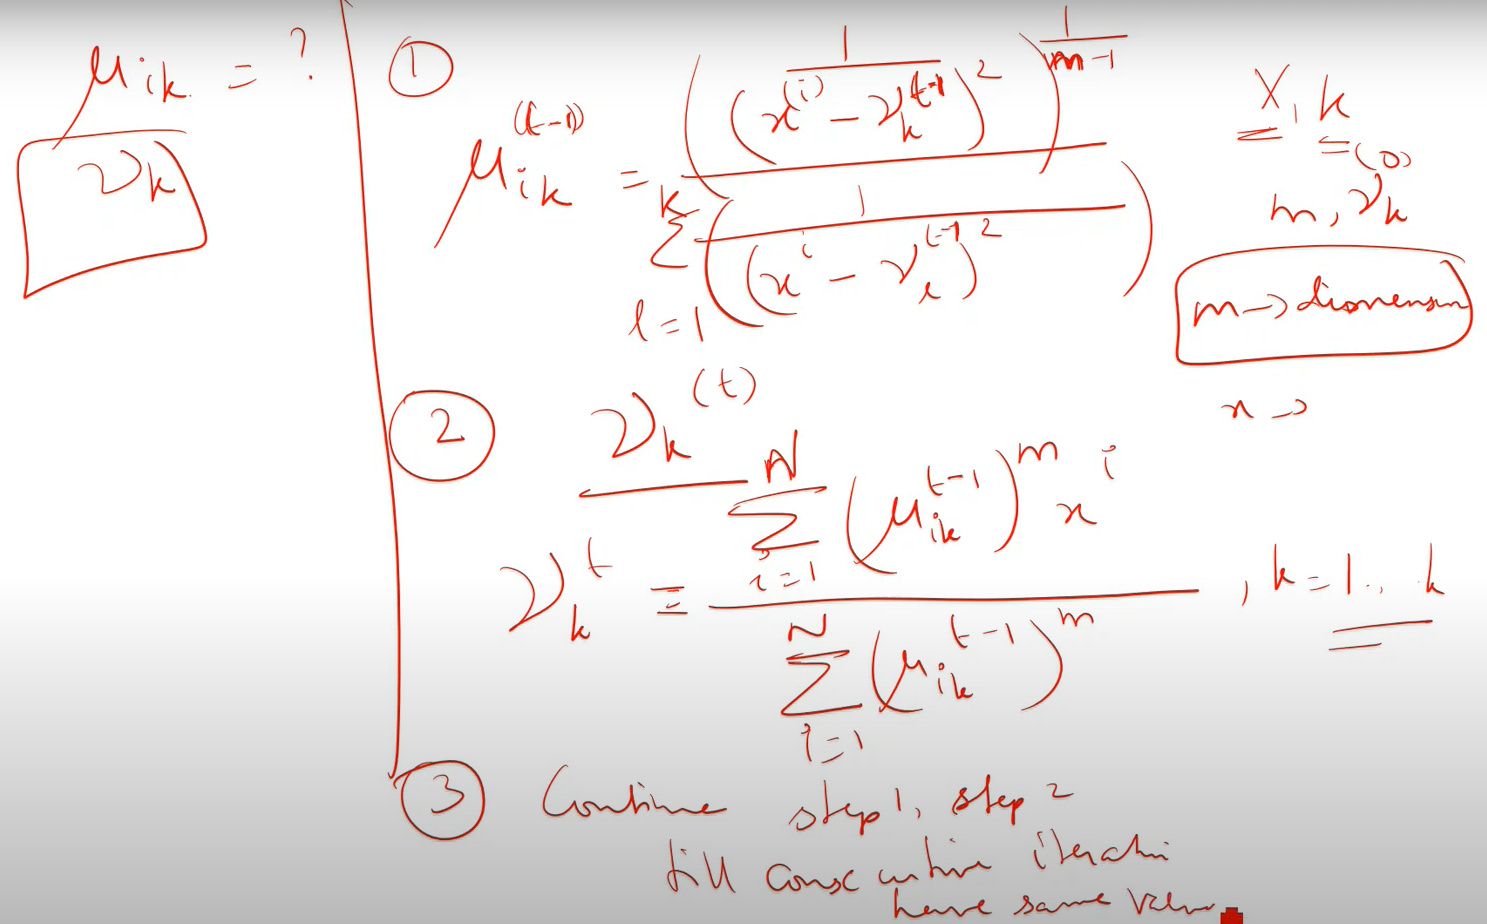 μ_ik = ?
ν_k
①
μ_ik^(t-1) = (1 / (x^(i) - ν_k^(t-1))^2)^(1/(m-1)) / Σ_{l=1}^{K} (1 / (x^i - ν_l^(t-1))^2)
X, k
m, ν_k^(0)
m → dimension
x →
②
ν_k^(t)
ν_k^t = Σ_{i=1}^{N} (μ_ik^(t-1))^m x^i / Σ_{i=1}^{N} (μ_ik^(t-1))^m , k = 1 .. k
③ Continue step 1, step 2
till consecutive iteration
have same value